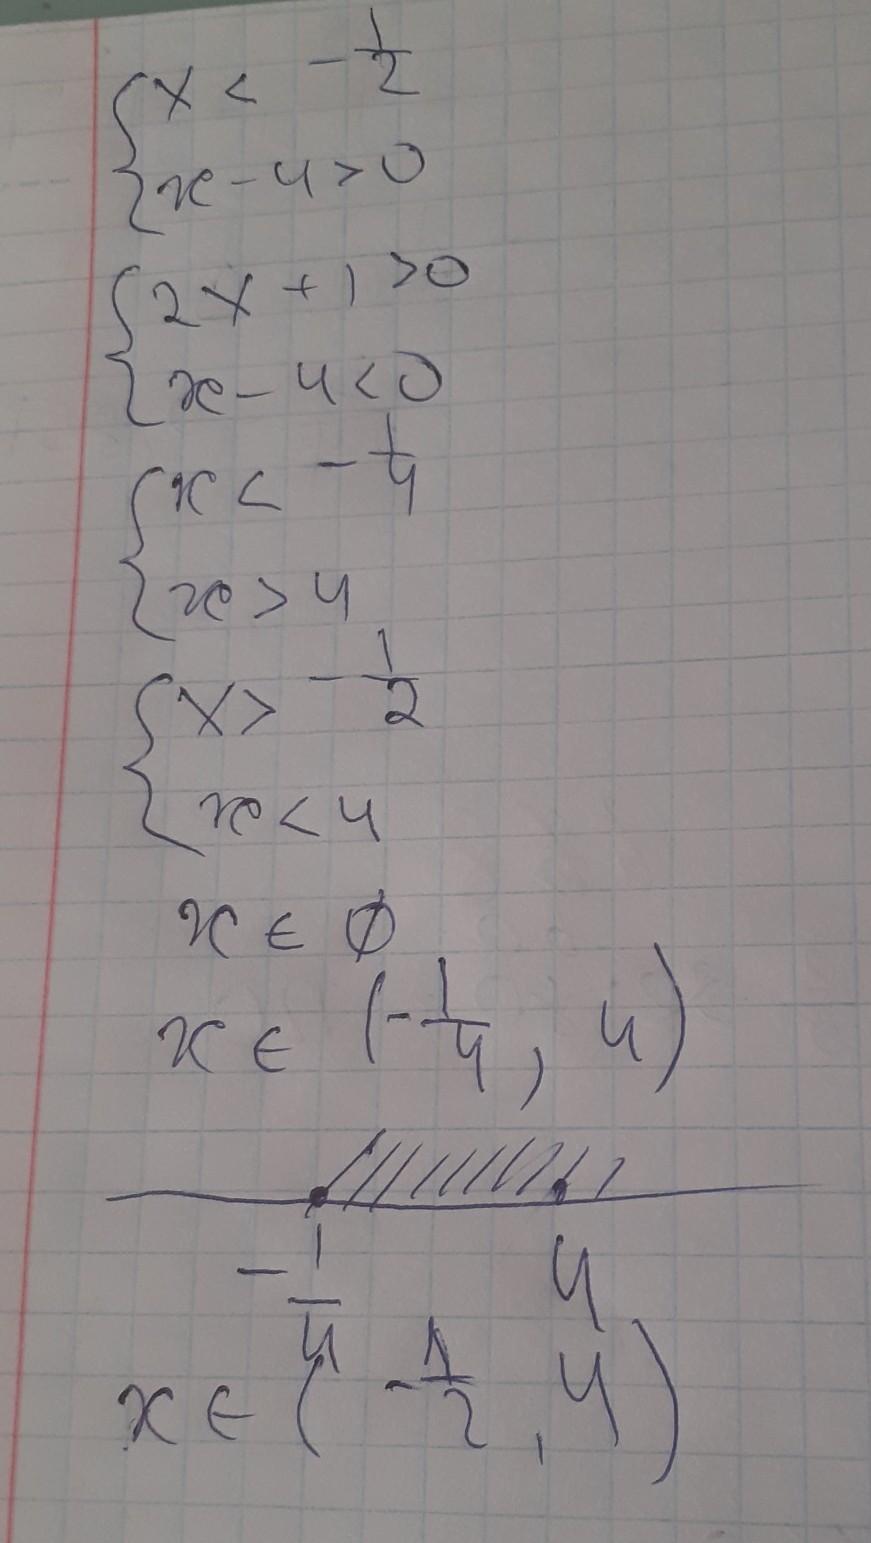 {x < -1/2
{x - 4 > 0
{2x + 1 > 0
{x - 4 < 0
{x < -1/4
{x > 4
{x > -1/2
{x < 4
x ∈ ∅
x ∈ (-1/4, 4)
-1/4 4
x ∈ (-1/2, 4)